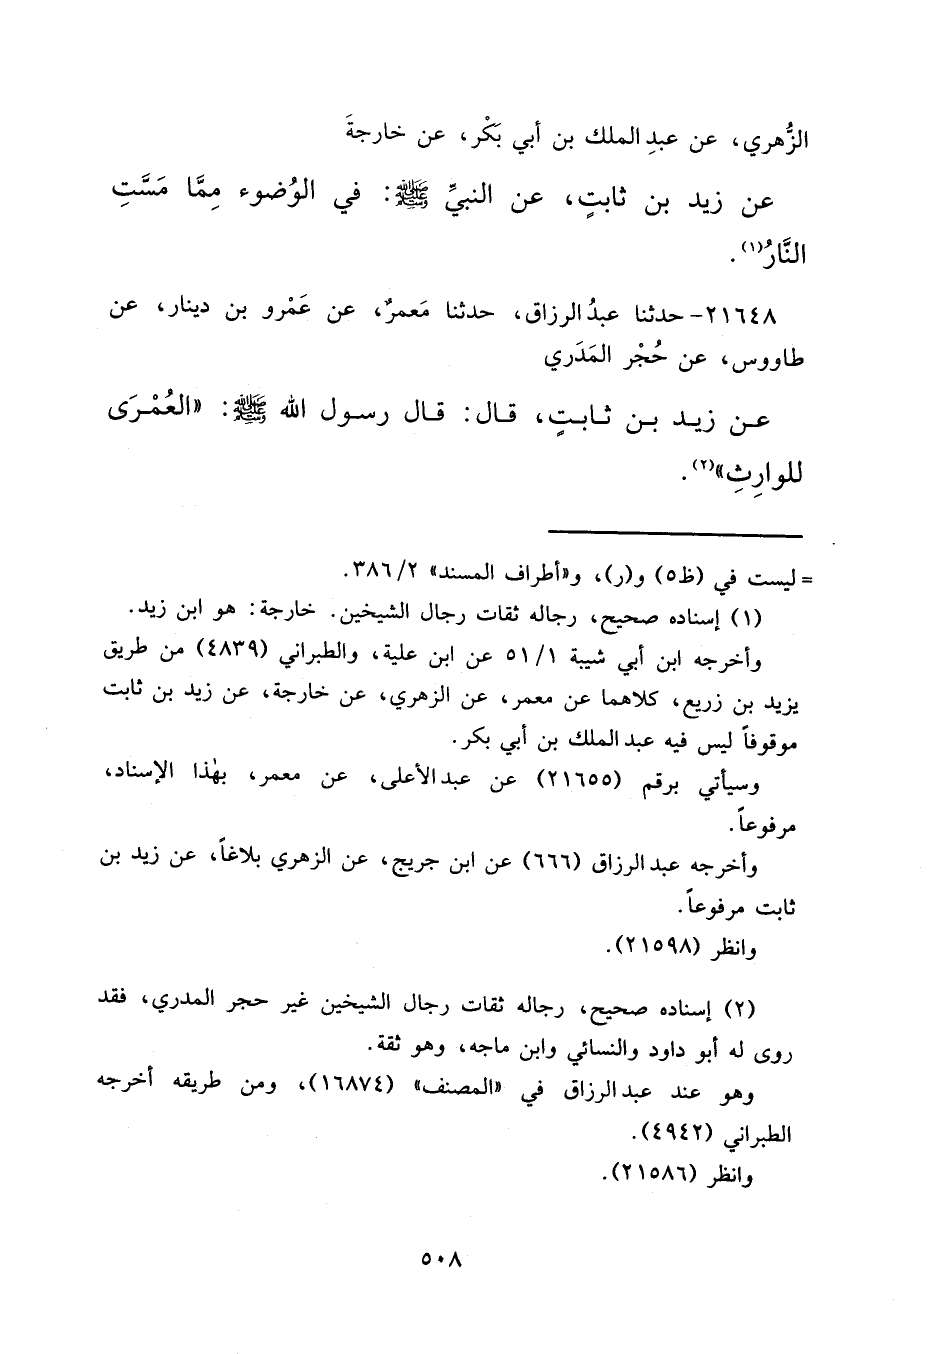 الزُّهري، عن عبدِ الملك بن أبي بَكْر، عن خارجةَ
عن زيد بن ثابتٍ، عن النبيِّ ﷺ: في الوُضوء مِمَّا مَسَّتِ
النَّارُ(١).
٢١٦٤٨- حدثنا عبدُ الرزاق، حدثنا مَعمرٌ، عن عَمْرو بن دينار، عن
طاووس، عن حُجْر المَدَري
عـن زيـد بـن ثـابـتٍ، قـال: قـال رسـول الله ﷺ: «العُمْـرَى
للوارِثِ»(٢).
= ليست في (ظ٥) و(ر)، و«أطراف المسند» ٣٨٦/٢.
(١) إسناده صحيح، رجاله ثقات رجال الشيخين. خارجة: هو ابن زيد.
وأخرجه ابن أبي شيبة ٥١/١ عن ابن علية، والطبراني (٤٨٣٩) من طريق
يزيد بن زريع، كلاهما عن معمر، عن الزهري، عن خارجة، عن زيد بن ثابت
موقوفاً ليس فيه عبد الملك بن أبي بكر.
وسيأتي برقم (٢١٦٥٥) عن عبد الأعلى، عن معمر، بهٰذا الإسناد،
مرفوعاً.
وأخرجه عبد الرزاق (٦٦٦) عن ابن جريج، عن الزهري بلاغاً، عن زيد بن
ثابت مرفوعاً.
وانظر (٢١٥٩٨).
(٢) إسناده صحيح، رجاله ثقات رجال الشيخين غير حجر المدري، فقد
روى له أبو داود والنسائي وابن ماجه، وهو ثقة.
وهو عند عبد الرزاق في «المصنف» (١٦٨٧٤)، ومن طريقه أخرجه
الطبراني (٤٩٤٢).
وانظر (٢١٥٨٦).
٥٠٨